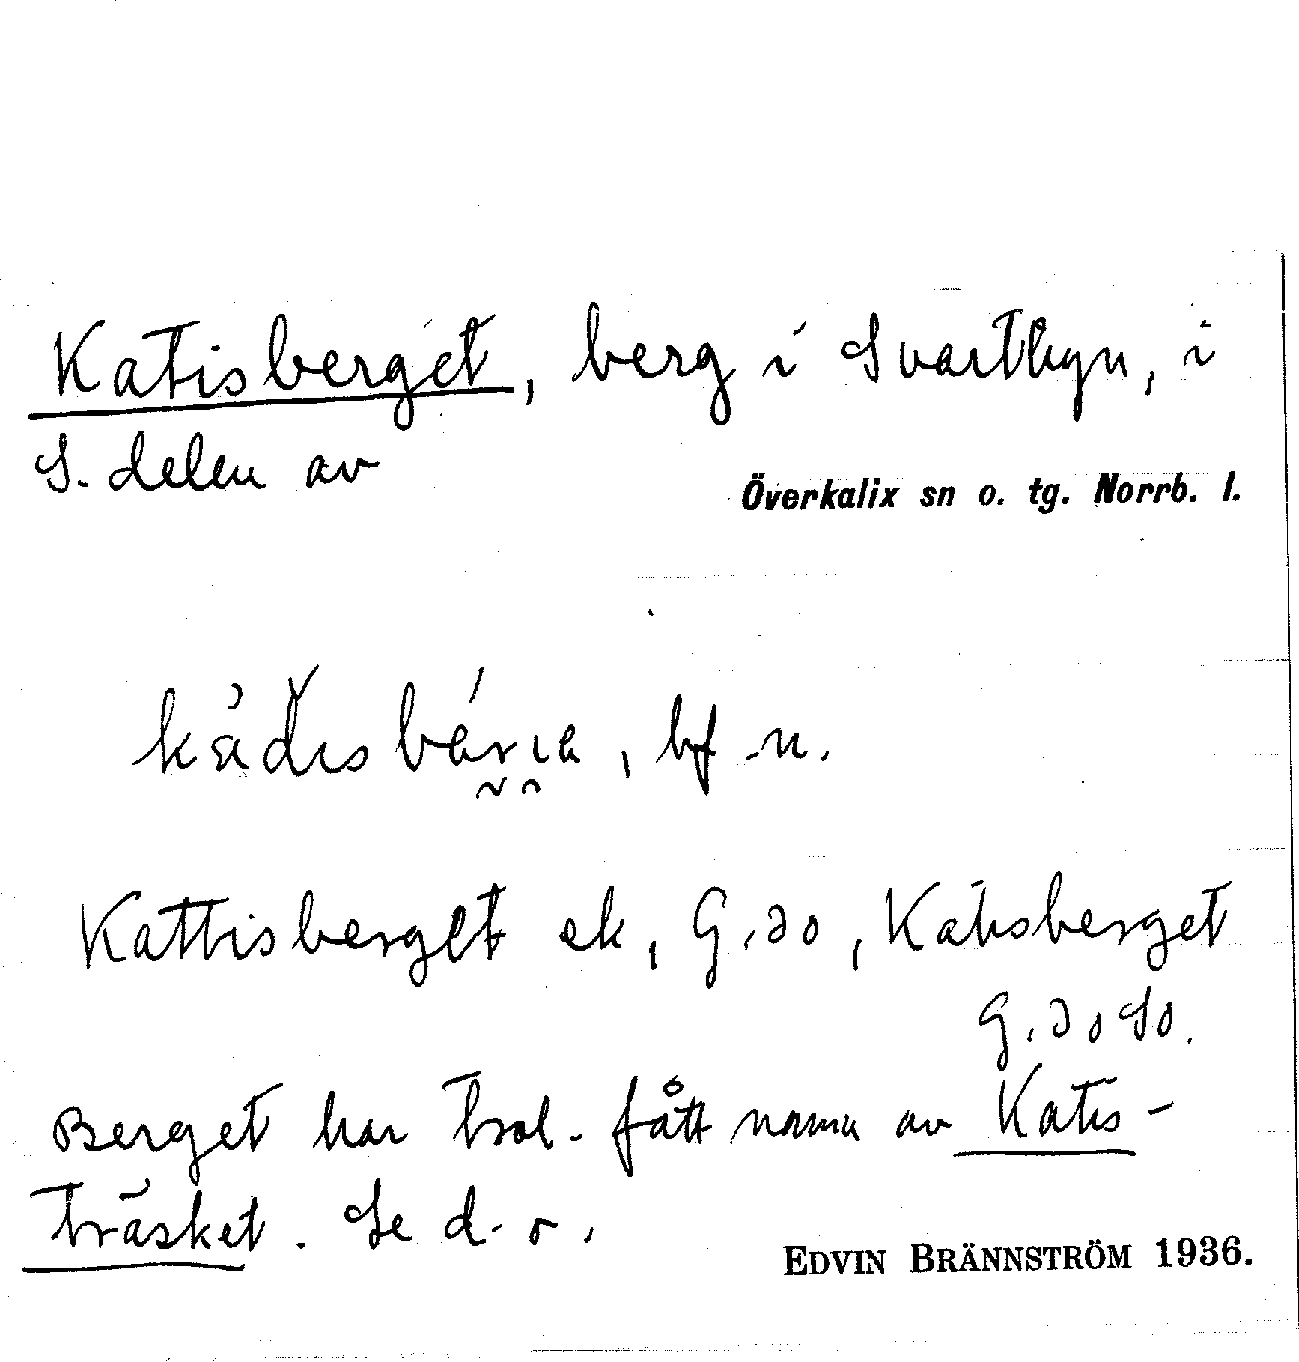 Katisberget, berg i Svartbyn, i
S. delen av
Överkalix sn o. tg. Norrb. l.
bf. n.
Kattisberget ek, G.30, Katisberget
G.30 So.
Berget har trol. fått namn av Katis-
träsket. Se d. o.
EDVIN BRÄNNSTRÖM 1936.